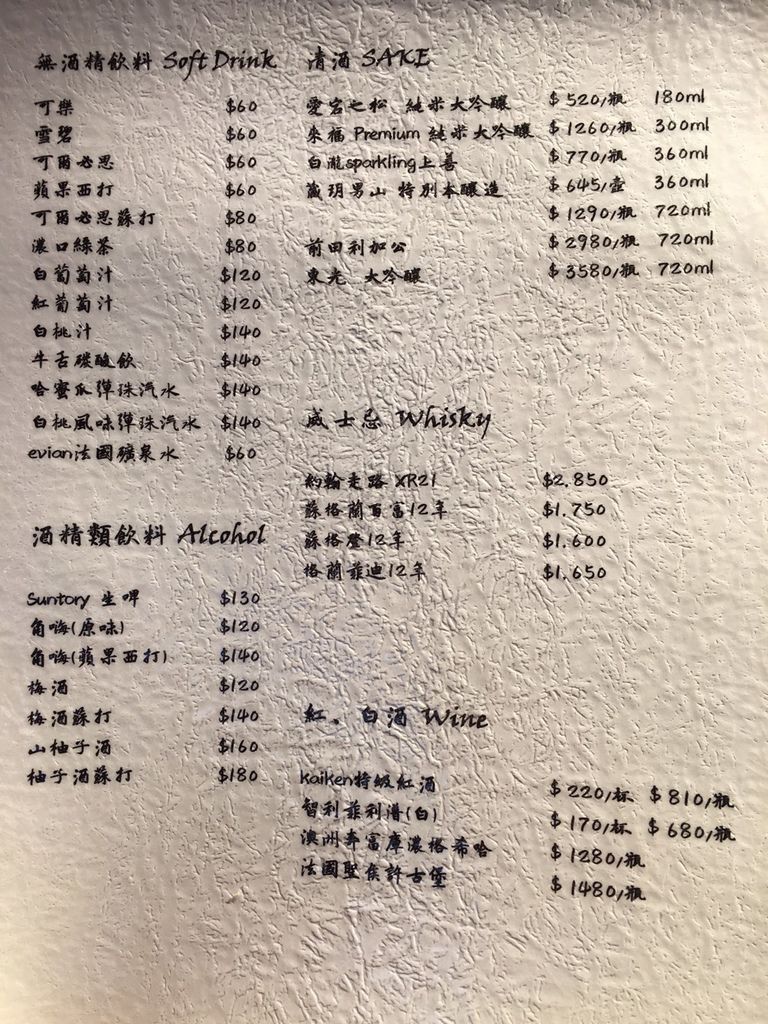 無酒精飲料 Soft Drink
可樂 $60
雪碧 $60
可爾必思 $60
蘋果西打 $60
可爾必思蘇打 $80
濃口綠茶 $80
白葡萄汁 $120
紅葡萄汁 $120
白桃汁 $140
牛舌碳酸飲 $140
哈蜜瓜彈珠汽水 $140
白桃風味彈珠汽水 $140
evian法國礦泉水 $60
酒精類飲料 Alcohol
Suntory 生啤 $130
角嗨(原味) $120
角嗨(蘋果西打) $140
梅酒 $120
梅酒蘇打 $140
山柚子酒 $160
柚子酒蘇打 $180
清酒 SAKE
愛宕之松 純米大吟釀 $520/瓶 180ml
來福 Premium 純米大吟釀 $1260/瓶 300ml
白瀧sparkling上善 $770/瓶 360ml
藏玥男山 特別本釀造 $645/壺 360ml
$1290/瓶 720ml
前田利加公 $2980/瓶 720ml
東光 大吟釀 $3580/瓶 720ml
威士忌 Whisky
約翰走路 XR21 $2.850
蘇格蘭百富12年 $1.750
蘇格登12年 $1.600
格蘭菲迪12年 $1.650
紅、白酒 Wine
kaiken特級紅酒 $220/杯 $810/瓶
智利菲利普(白) $170/杯 $680/瓶
澳洲奔富庫濃格希哈 $1280/瓶
法國聖侯許古堡 $1480/瓶